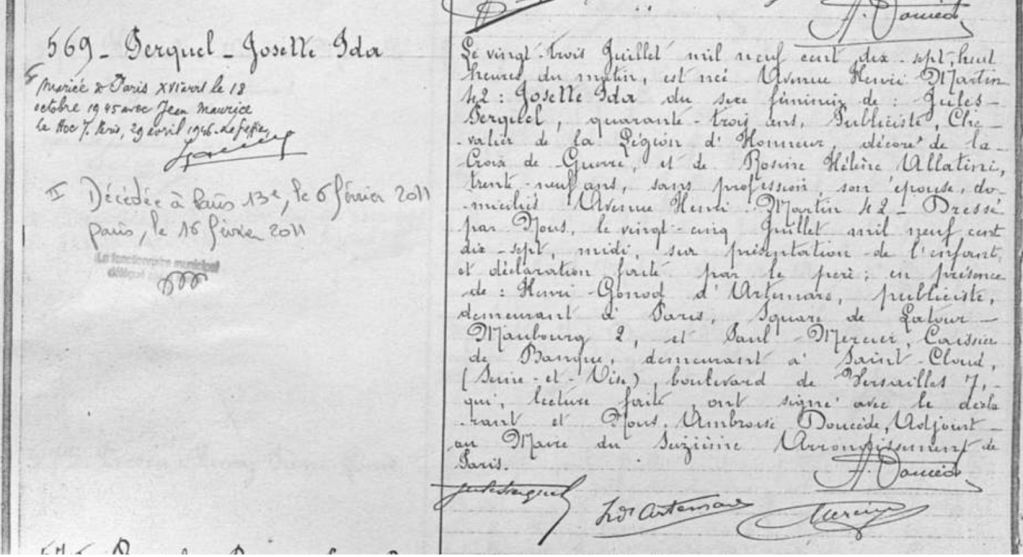 569 - Perquel - Josette Ida
Mariée à Paris XVI arrt le 18
octobre 1945 avec Jean Maurice
le Paris, 29 avril 1946.
II Décédée à Paris 13e, le 6 février 2011
paris, le 16 février 2011
Le fonctionnaire municipal
délégué
Le vingt-trois Juillet mil neuf cent dix-sept, huit
heures du matin, est née Avenue Henri Martin
42 : Josette Ida du sexe féminin de : Jules-
Perquel, quarante-trois ans, Publiciste, Che-
valier de la Légion d'Honneur, décoré de la-
Croix de Guerre, et de Rosine Hélène Allatini,
trente-neuf ans, sans profession, son épouse, do-
miciliés Avenue Henri-Martin 42 - Dressé
par Nous, le vingt-cinq Juillet mil neuf cent
dix-sept, midi, sur présentation de l'enfant
et déclaration faite par le père ; en présence
de : Henri-Gonod d'Artemare, publiciste,
demeurant à Paris, Square de Latour-
Maubourg 2, et Paul Mercier, Caissier
de Banque, demeurant à Saint-Cloud,
(Seine-et-Oise), boulevard de Versailles 7,-
qui, lecture faite, ont signé avec le décla
rant et Nous, Ambroise Doucède, Adjoint-
au Maire du Seizième Arrondissement de
Paris.
A. Doucède